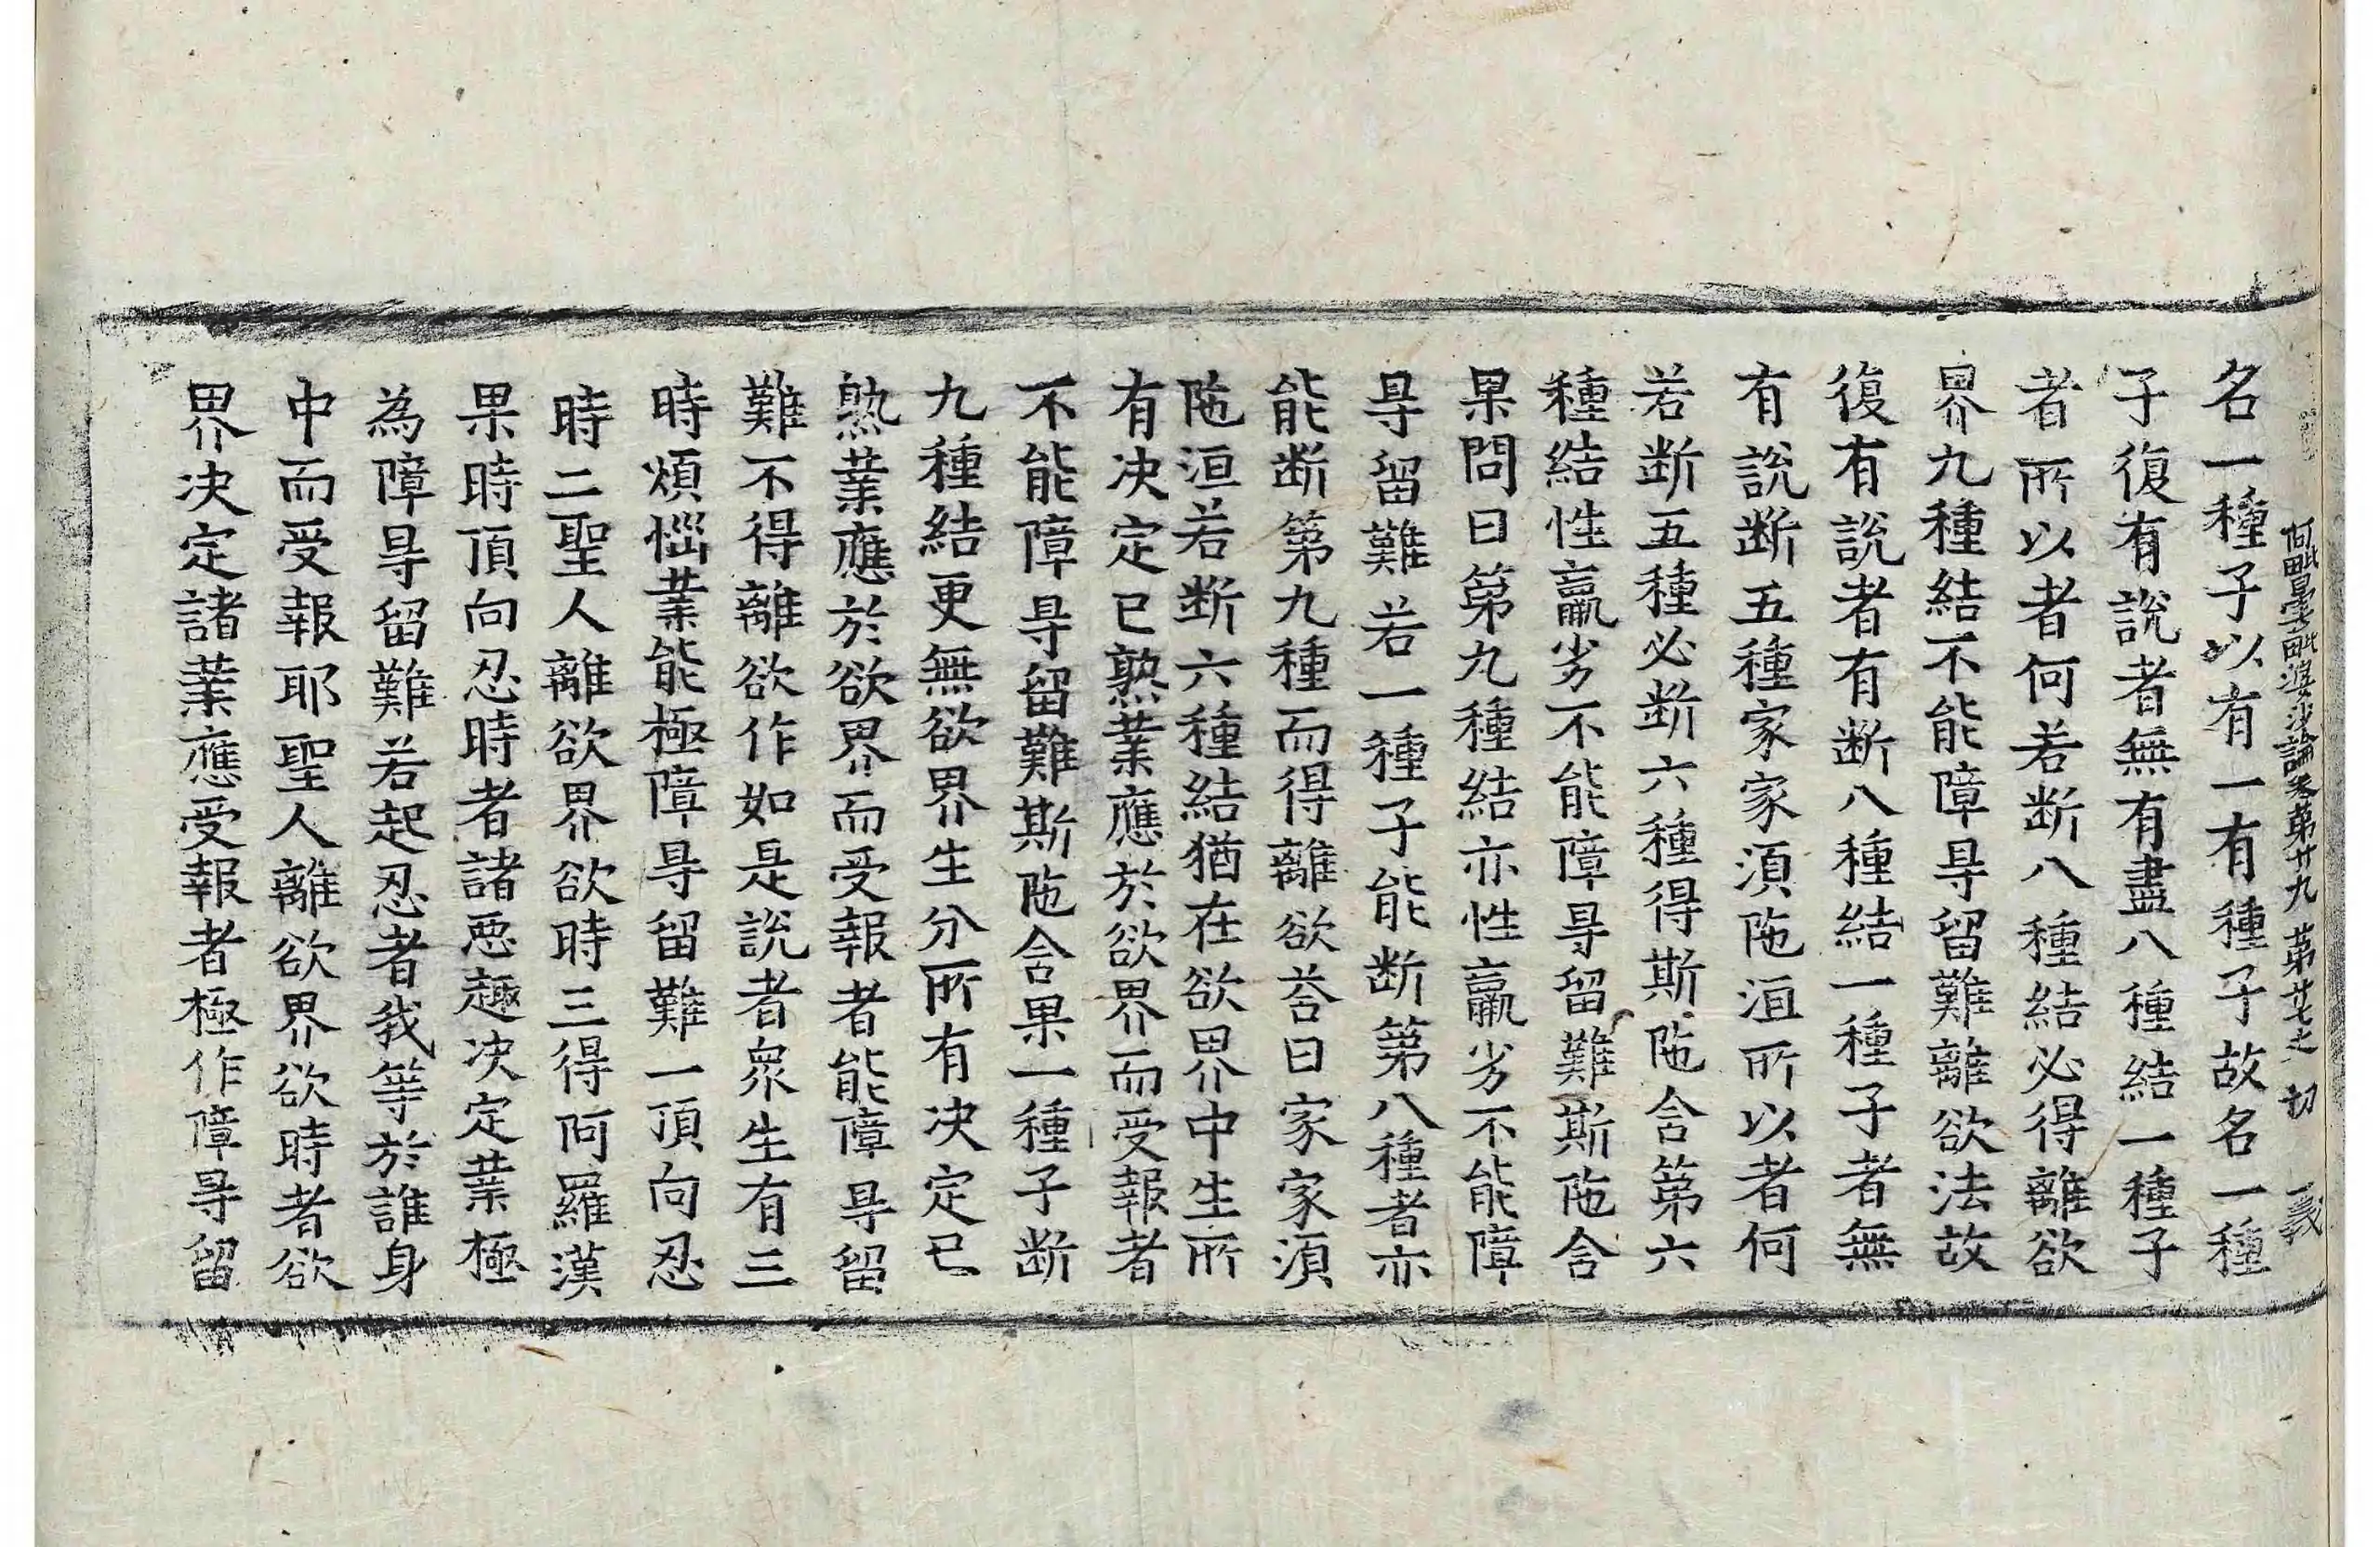 阿毗曇毗婆沙論卷第廿九 第廿七之 切 義
名一種子以有一有種子故名一種
子復有說者無有盡八種結一種子
者所以者何若斷八種結必得離欲
界九種結不能障㝵留難離欲法故
復有說者有斷八種結一種子者無
有說斷五種家家須陁洹所以者何
若斷五種必斷六種得斯陁含第六
種結性羸劣不能障㝵留難斯陁含
果問曰第九種結亦性羸劣不能障
㝵留難若一種子能斷第八種者亦
能斷第九種而得離欲荅曰家家須
陁洹若斷六種結猶在欲界中生所
有决定已熟業應於欲界而受報者
不能障㝵留難斯陁含果一種子斷
九種結更無欲界生分所有决定已
熟業應於欲界而受報者能障㝵留
難不得離欲作如是說者衆生有三
時煩惱業能極障㝵留難一頂向忍
時二聖人離欲界欲時三得阿羅漢
果時頂向忍時者諸惡趣决定業極
為障㝵留難若起忍者我等於誰身
中而受報耶聖人離欲界欲時者欲
界决定諸業應受報者極作障㝵留